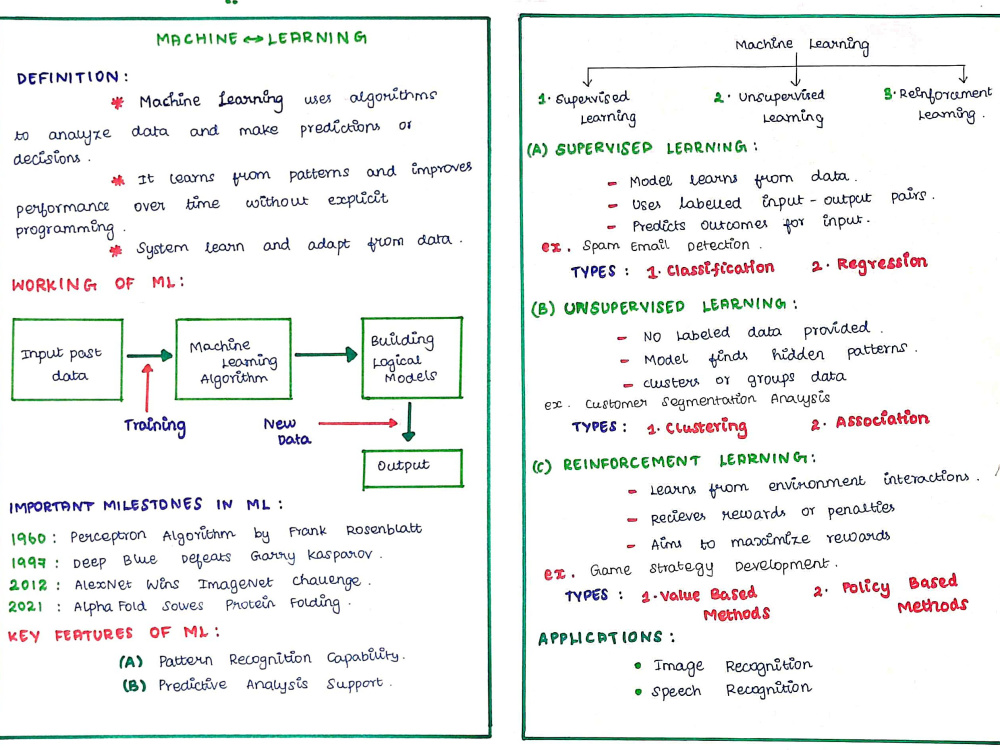 MACHINE ↔ LEARNING
DEFINITION:
* Machine Learning uses algorithms
to analyze data and make predictions or
decisions.
* It learns from patterns and improves
performance over time without explicit
programming.
* System learn and adapt from data.
WORKING OF ML:
Input past
data
Machine
Learning
Algorithm
Building
Logical
Models
Training
New
Data
Output
IMPORTANT MILESTONES IN ML:
1960: Perceptron Algorithm by Frank Rosenblatt
1997: Deep Blue Defeats Garry Kasparov.
2012: AlexNet Wins ImageNet Challenge.
2021: Alpha Fold Solves Protein Folding.
KEY FEATURES OF ML:
(A) Pattern Recognition Capability.
(B) Predictive Analysis Support.
Machine Learning
1. Supervised
Learning
2. Unsupervised
Learning
3. Reinforcement
Learning.
(A) SUPERVISED LEARNING:
- Model learns from data.
- Uses labelled input-output pairs.
- Predicts outcomes for input.
ex. Spam Email Detection.
TYPES: 1. Classification 2. Regression
(B) UNSUPERVISED LEARNING:
- No Labeled data provided.
- Model finds hidden patterns.
- clusters or groups data
ex. Customer Segmentation Analysis
TYPES: 1. Clustering 2. Association
(C) REINFORCEMENT LEARNING:
- Learns from environment interactions.
- Recieves rewards or penalties
- Aims to maximize rewards
ex. Game Strategy Development.
TYPES: 1. Value Based 2. Policy Based
Methods Methods
APPLICATIONS:
• Image Recognition
• Speech Recognition